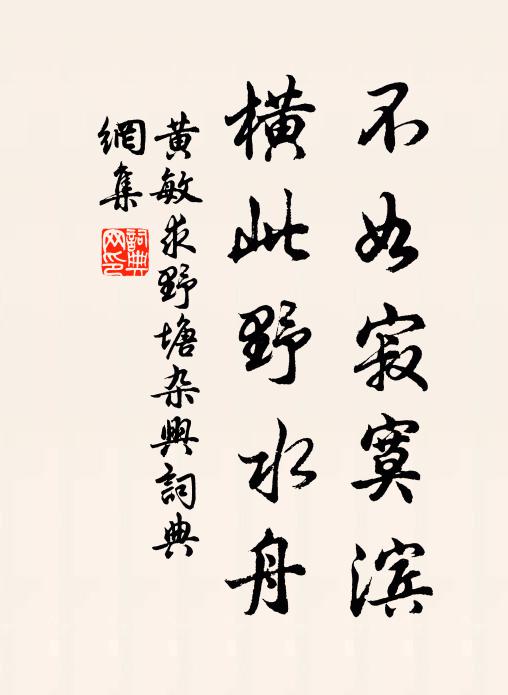 不如寂寞滨
横此野水舟
黄敏求野塘杂興詞典
網集
詞典
网印